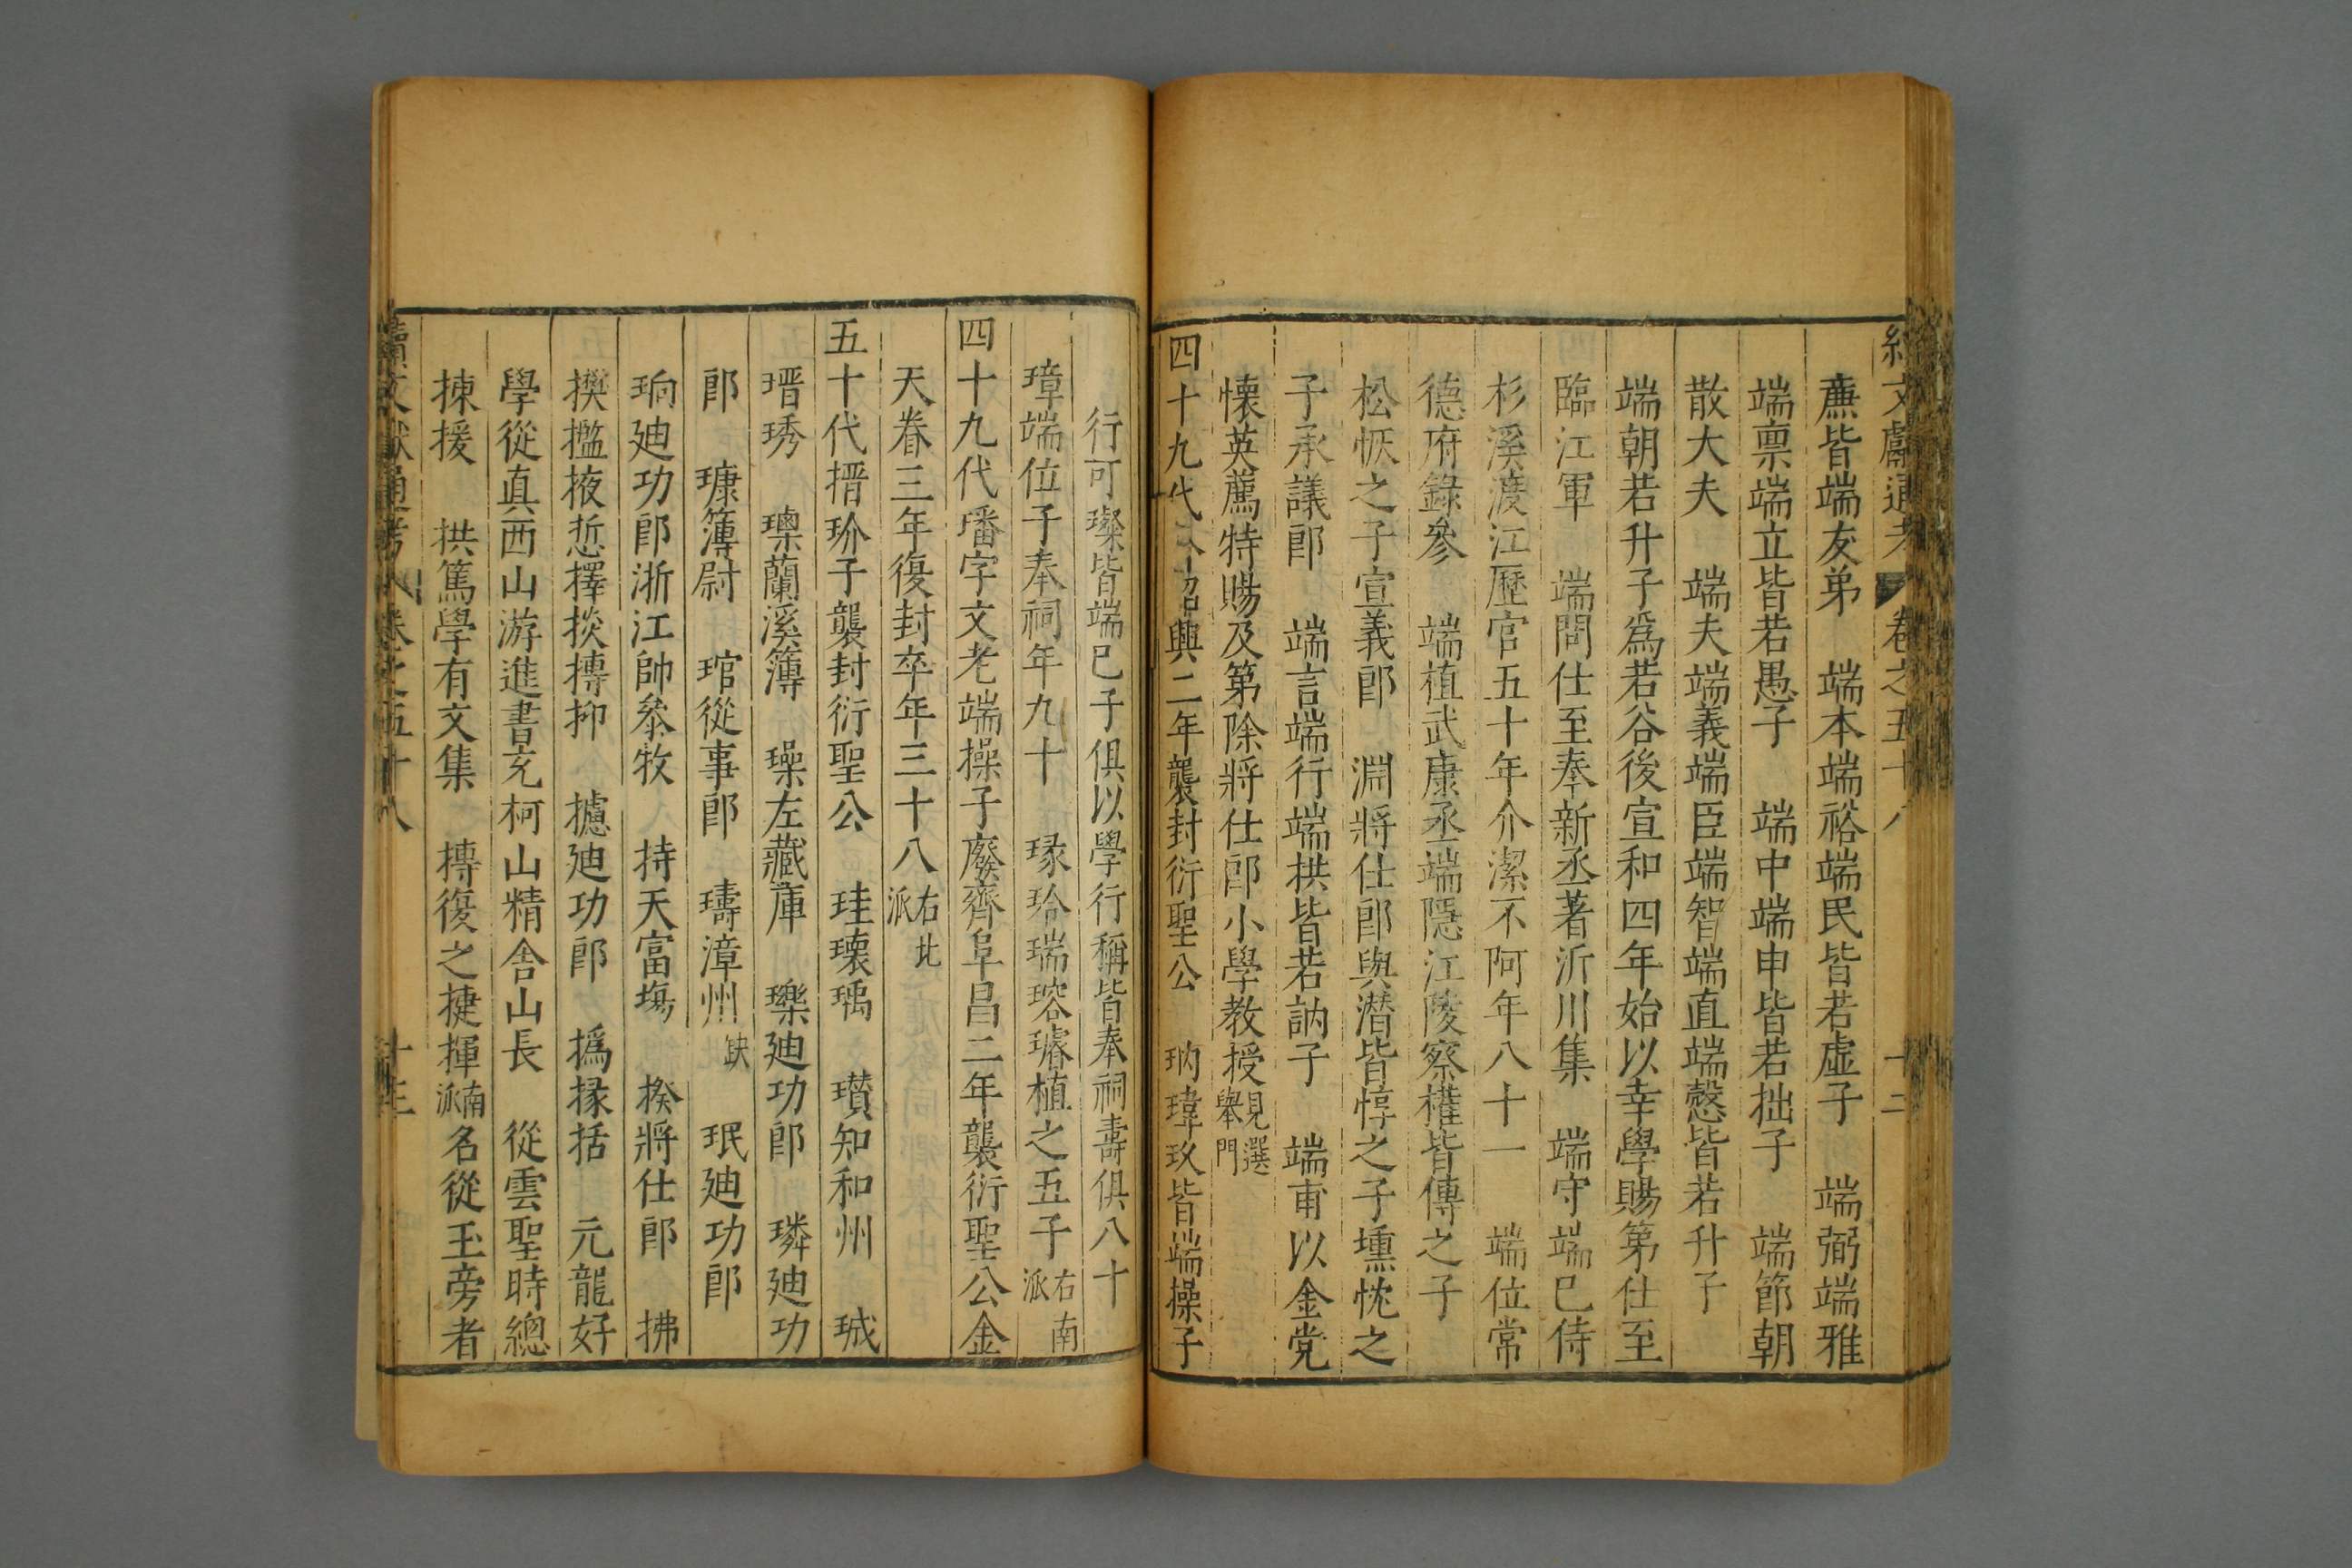 續文獻通考 卷之五十八 十二
廡皆端友弟 端本端裕端民皆若虛子 端弼端雅
端禀端立皆若愚子 端中端申皆若拙子 端節朝
散大夫 端夫端義端臣端智端直端慤皆若升子
端朝若升子爲若谷後宣和四年始以幸學賜第仕至
臨江軍 端問仕至奉新丞著沂川集 端守端巳侍
杉溪渡江歷官五十年介潔不阿年八十一 端位常
德府錄參 端植武康丞端隱江陵察權皆傳之子
松恹之子宣義郎 淵將仕郎與潜皆惇之子壎忱之
子承議郎 端言端行端拱皆若訥子 端甫以金党
懐英薦特賜及第除將仕郎小學教授見選舉門
四十九代 紹興二年襲封衍聖公 珦瑋玖皆端操子
行可璨皆端巳子俱以學行稱皆奉祠壽俱八十
璋端位子奉祠年九十 瑑珨瑞瑢璿植之五子右南派
四十九代璠字文老端操子廢齊阜昌二年襲衍聖公金
天眷三年復封卒年三十八右北派
五十代搢玠子襲封衍聖公 珪瓌瑀 瓚知和州 珹
瑨琇 璪蘭溪簿 璪左藏庫 瓅廸功郎 璘廸功
郎 㻶簿尉 琯從事郎 璹漳州缺 珉廸功郎
珦廸功郎浙江帥叅牧 持天富塲 揆將仕郎 拂
撰㩜掖悊擇掞摶抑 攄廸功郎 撝掾括 元龍好
學從真西山游進書充柯山精舍山長 從雲聖時總
揀援 拱篤學有文集 摶復之㨗揮南派名從玉旁者
續文獻通考 卷之五十八 十三